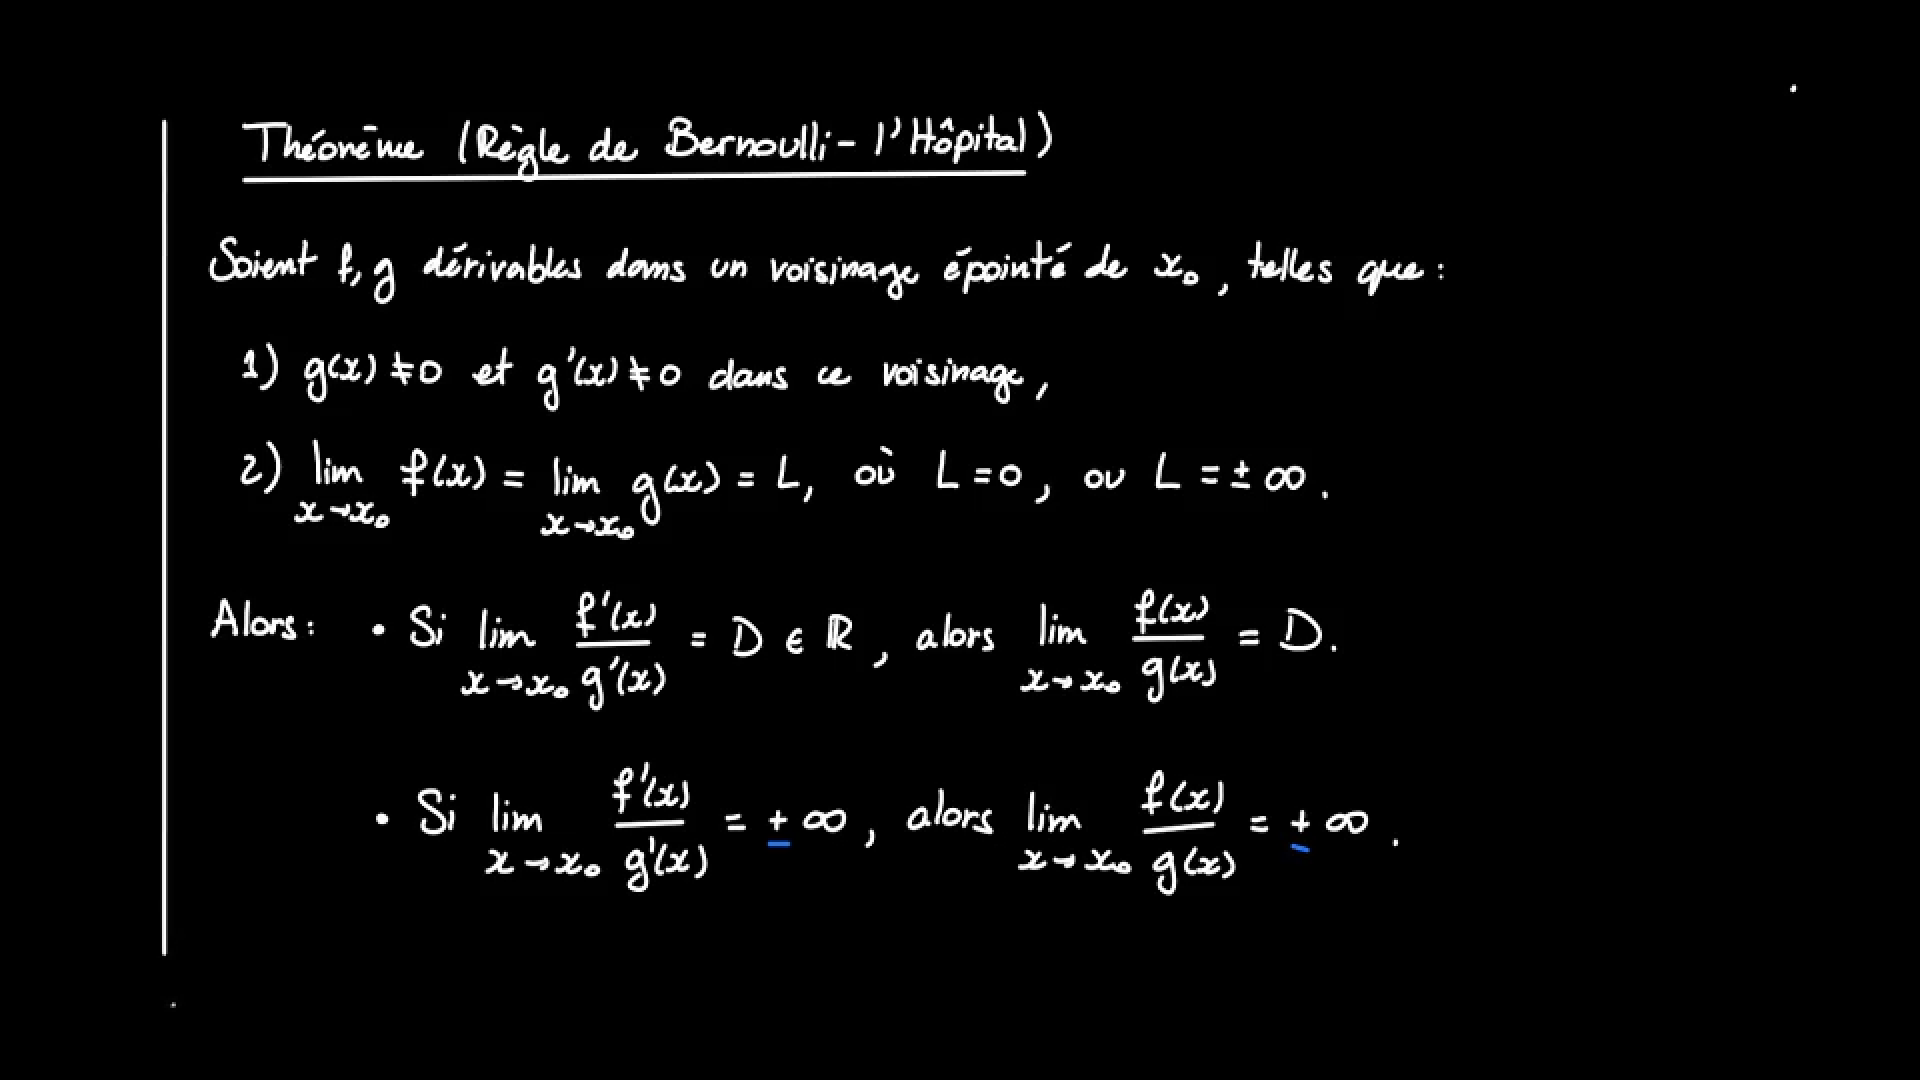 Théorème (Règle de Bernoulli - l'Hôpital)
Soient f, g dérivables dans un voisinage épointé de x₀, telles que :
1) g(x) ≠ 0 et g'(x) ≠ 0 dans ce voisinage,
2) lim_{x→x₀} f(x) = lim_{x→x₀} g(x) = L, où L = 0, ou L = ± ∞.
Alors : • Si lim_{x→x₀} f'(x)/g'(x) = D ∈ ℝ, alors lim_{x→x₀} f(x)/g(x) = D.
• Si lim_{x→x₀} f'(x)/g'(x) = ± ∞, alors lim_{x→x₀} f(x)/g(x) = ± ∞.